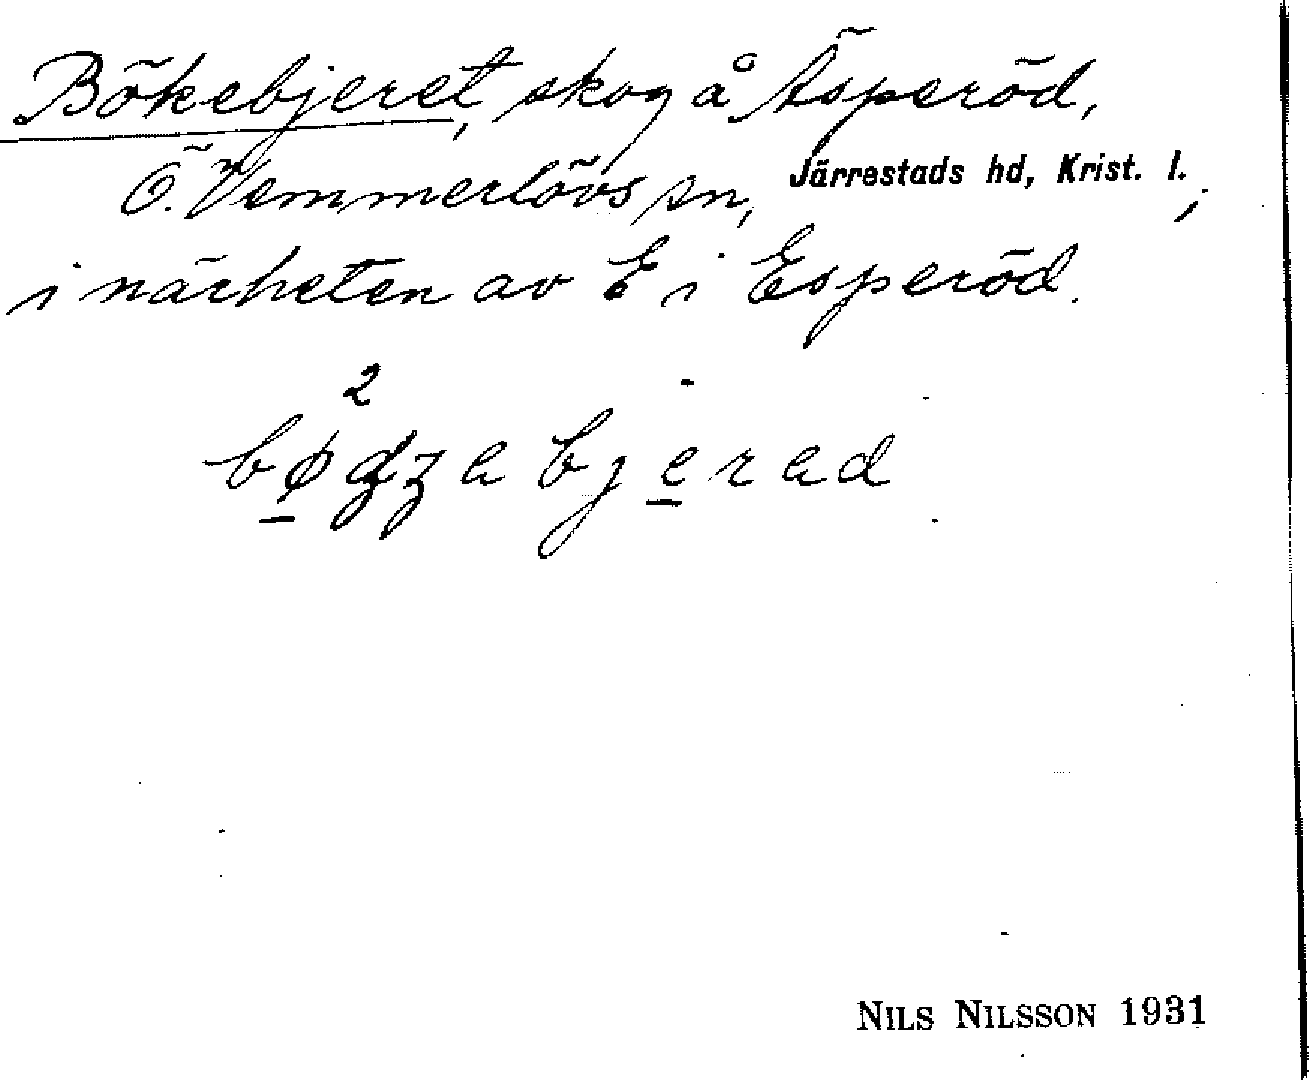 Bökebjeret, skog å Äsperöd,
Ö. Vemmerlövs sn, Järrestads hd, Krist. l.;
i närheten av E i Esperöd.
2
NILS NILSSON 1931